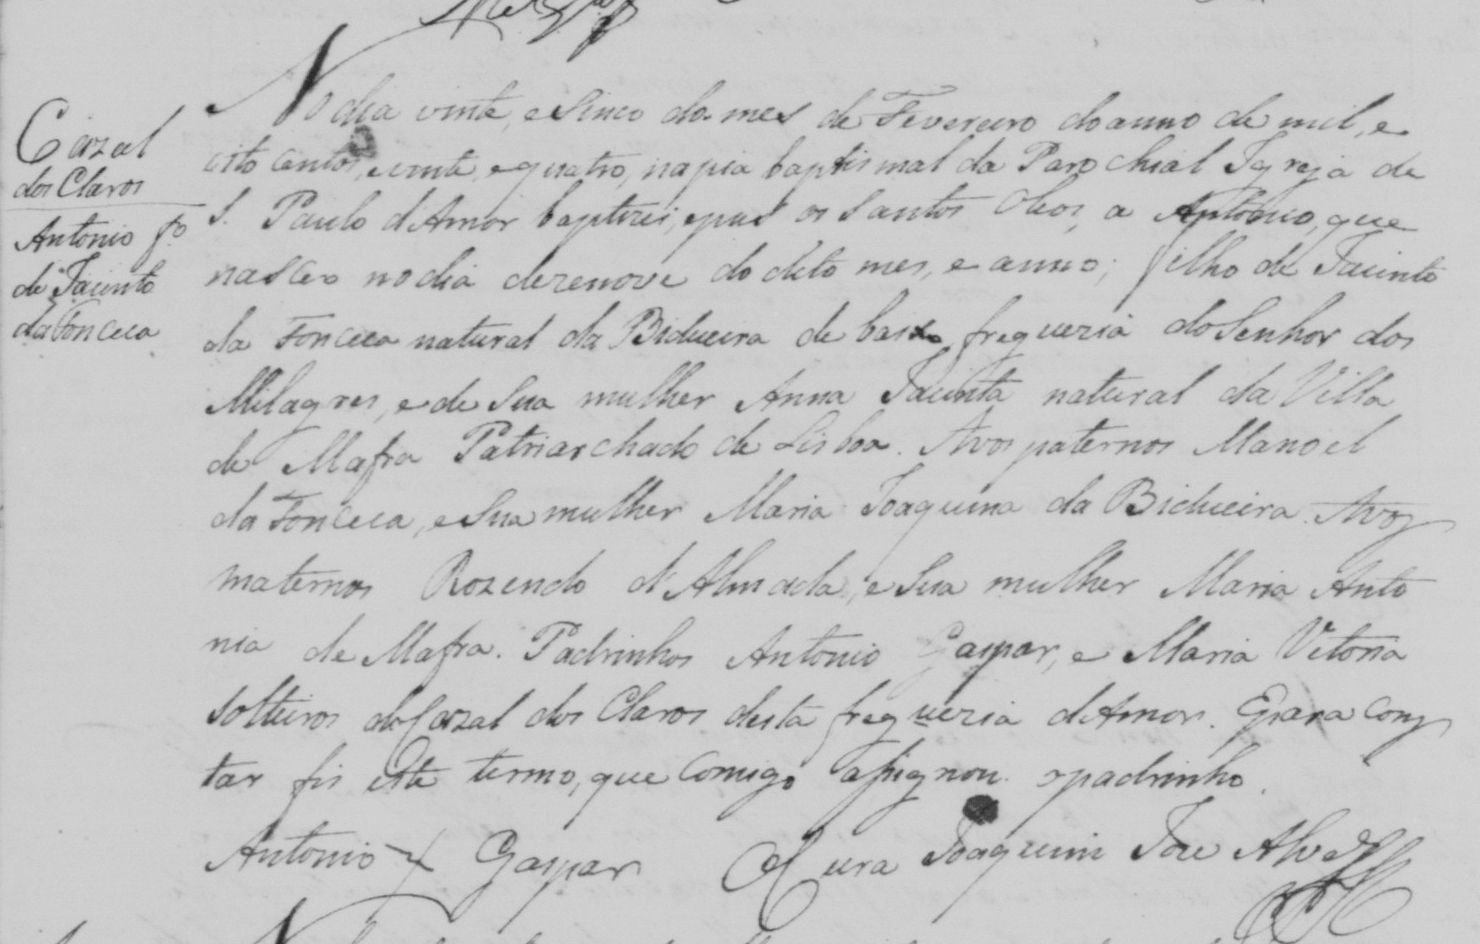 Cazal
dos Claros
Antonio fo.
de Jacinto
da Fonceca
No dia vinte, e Sinco do mes de Fevereiro do anno de mil, e
oito centos, e vinte, e quatro, na pia baptismal da Parochial Igreja de
S. Paulo d'Amor baptizei, e puz os Santos Oleos, a Antonio, que
nasceo no dia dezenove do dito mes, e anno; filho de Jacinto
da Fonceca natural da Bidueira de baixo freguezia do Senhor dos
Milagres, e de Sua mulher Anna Jacinta natural da Villa
de Mafra Patriarchado de Lisboa. Avos paternos Manoel
da Fonceca, e Sua mulher Maria Joaquina da Bidueira. Avos
maternos Rozendo d'Almada, e Sua mulher Maria Anto
nia de Mafra. Padrinhos Antonio Gaspar, e Maria Vitoria
Solteiros do Cazal dos Claros desta freguezia d'Amor. E para cons
tar fis este termo, que Comigo assignou o padrinho.
Antonio + Gaspar O Cura Joaquim Joze Alvez